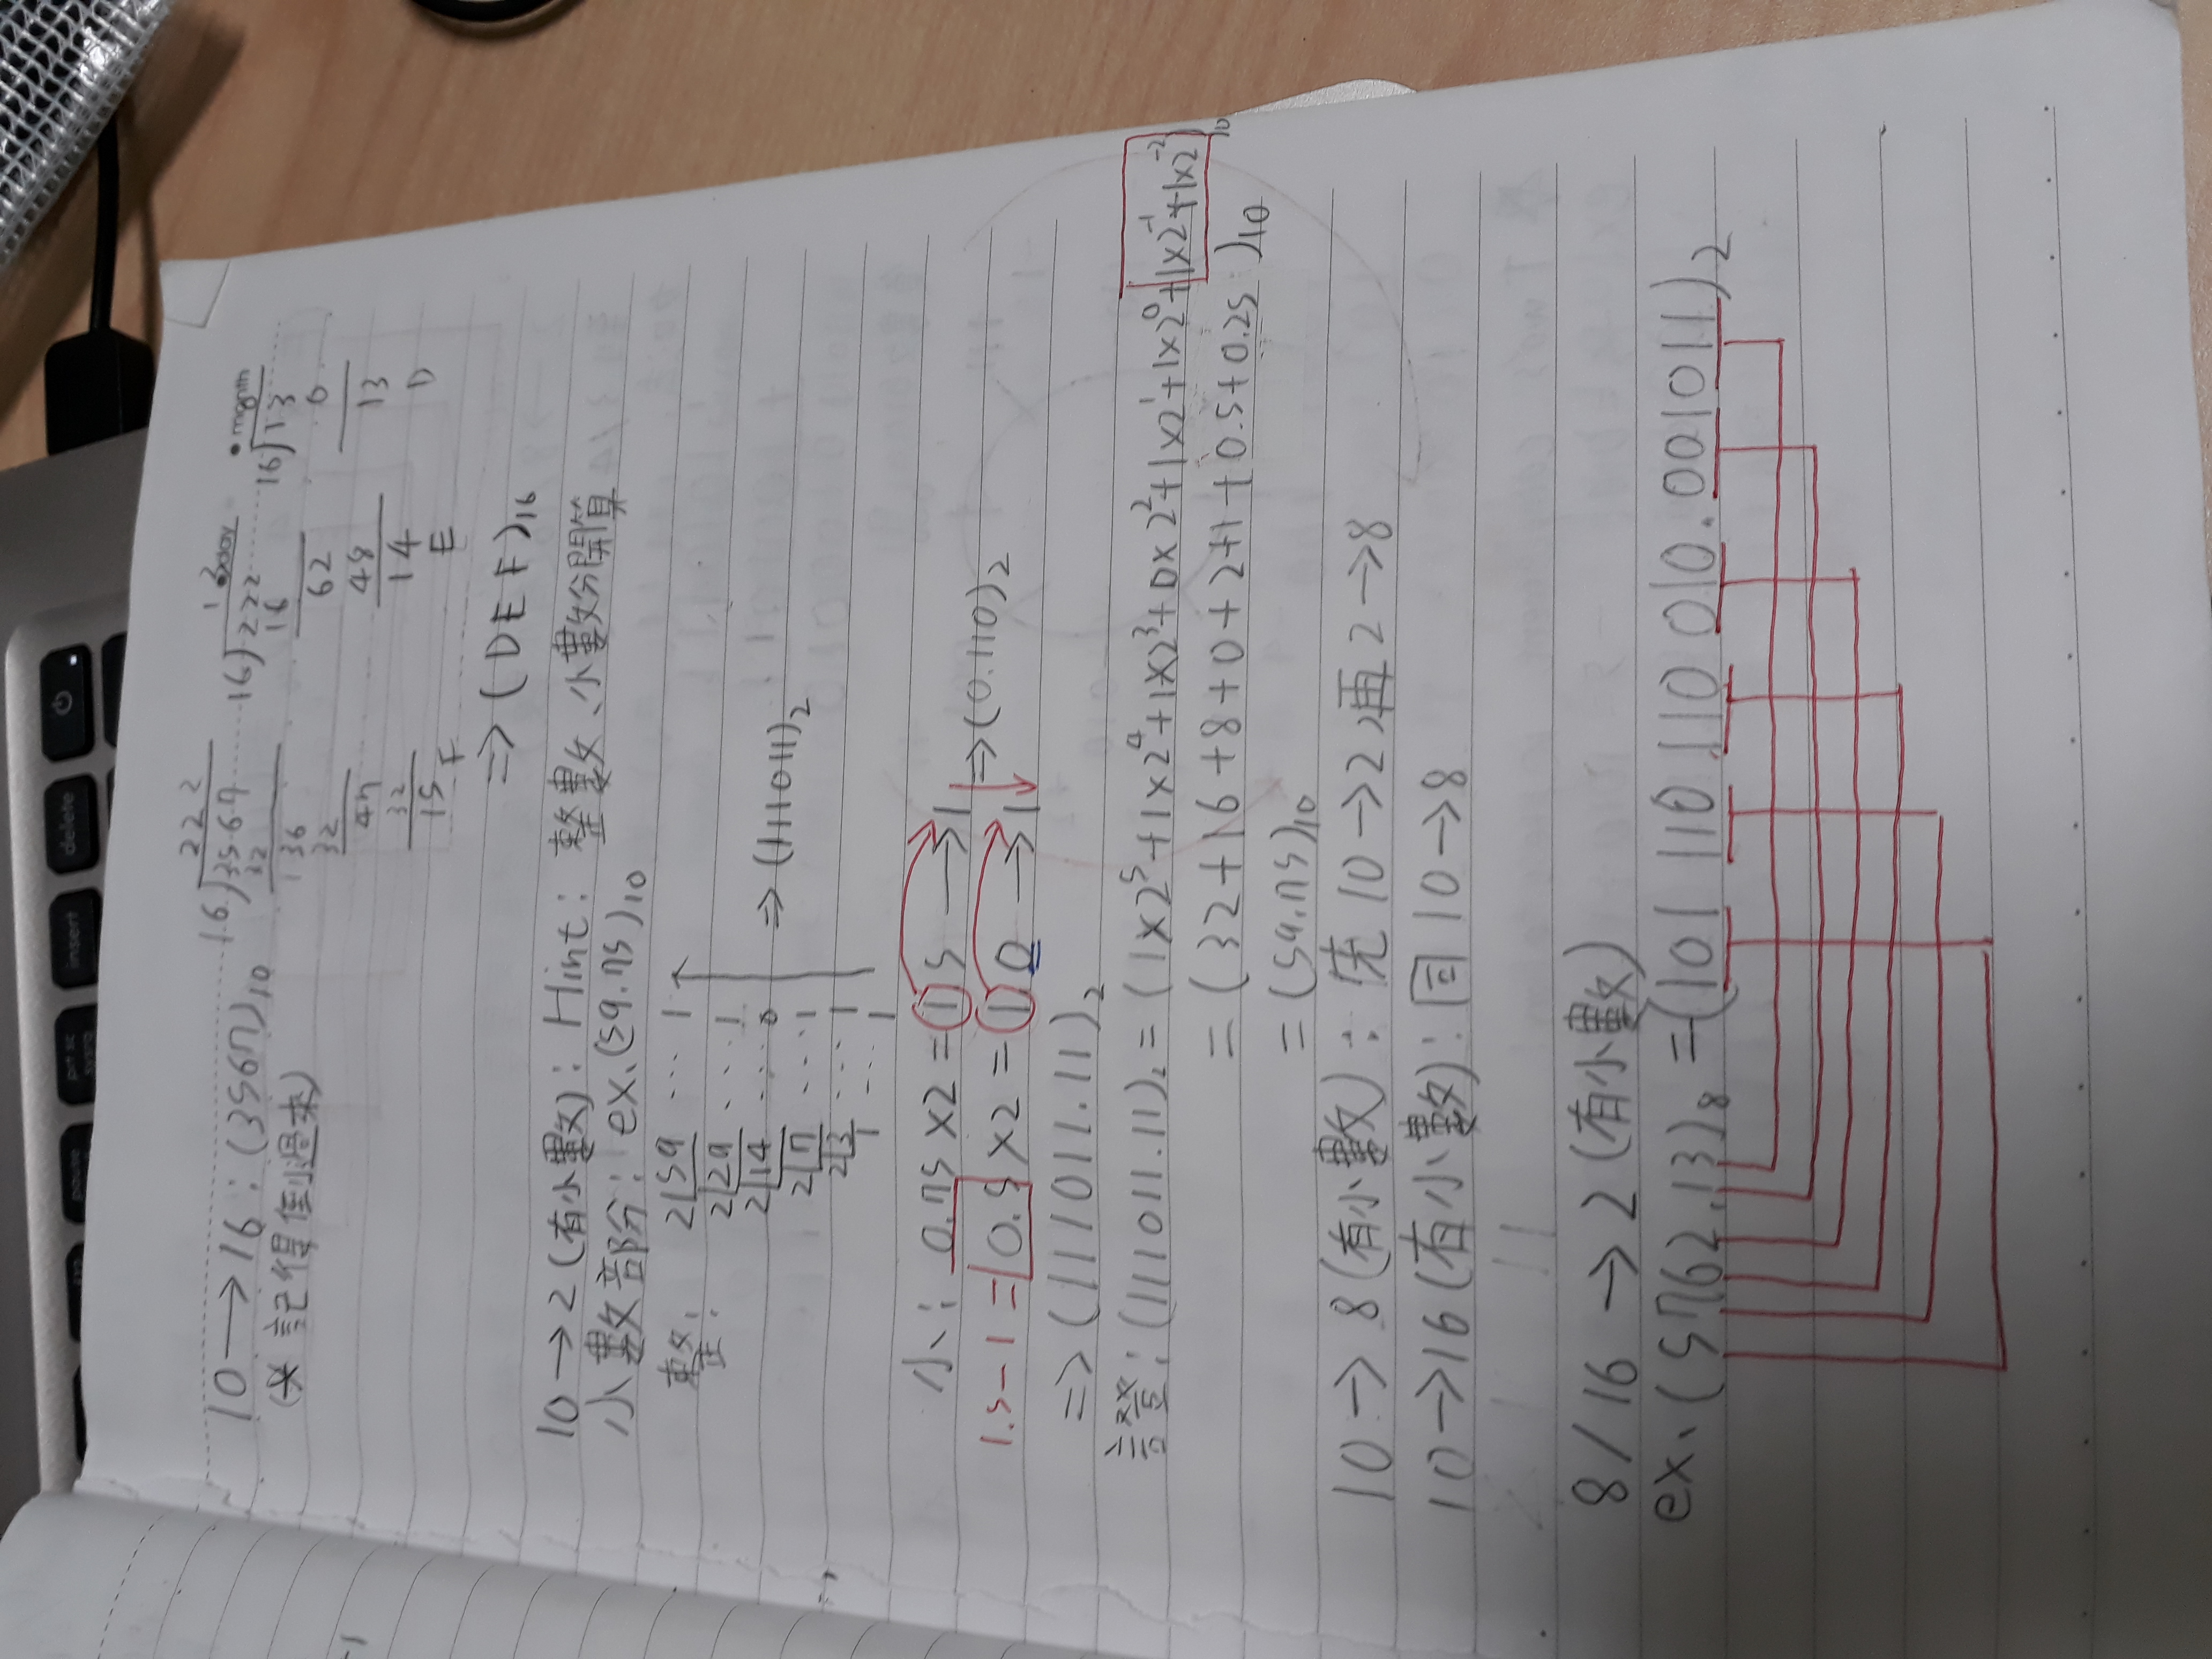 pause prt sc sysrq insert delete
10 → 16 : (3567)₁₀
(* 記得倒過來)
222
16)3567
32
136
32
47
32
15 F
13 day
16)222
16
62
48
14
E
month
16)13
0
13
D
=> (DEF)₁₆
10 → 2 (有小數): Hint: 整數、小數分開算
小數部分: ex. (59.75)₁₀
整: 2|59 ... 1
2|29 ... 1
2|14 ... 0
2|7 ... 1
2|3 ... 1
1 ... 1
=> (111011)₂
小: 0.75 ×2 = 1 5 → 1
1.5-1 = 0.5 ×2 = 1.0 → 1
=> (0.110)₂
=> (111011.11)₂
證: (111011.11)₂ = (1×2⁵+1×2⁴+1×2³+0×2²+1×2¹+1×2⁰+1×2⁻¹+1×2⁻²)₁₀
= (32+16+8+0+2+1+0.5+0.25)₁₀
= (59.75)₁₀
10 → 8 (有小數): 先 10→2,再 2→8
10→16 (有小數): 同 10→8
8/16 → 2 (有小數)
ex. (5762.13)₈ = (101 110 110 010.001011)₂